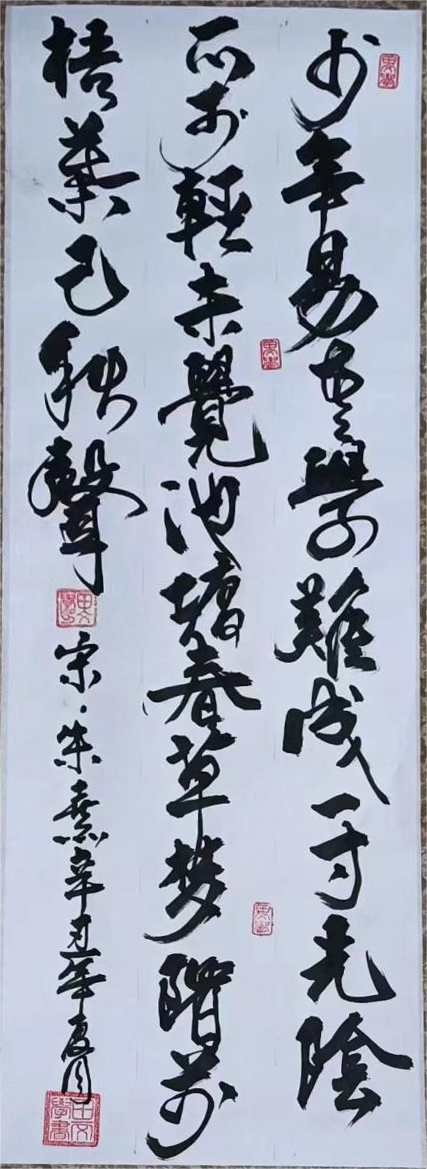 少年易老學難成一寸光陰
不可輕未覺池塘春草梦階前
梧葉已秋聲
宋·朱熹辛丑年夏月
田文學書